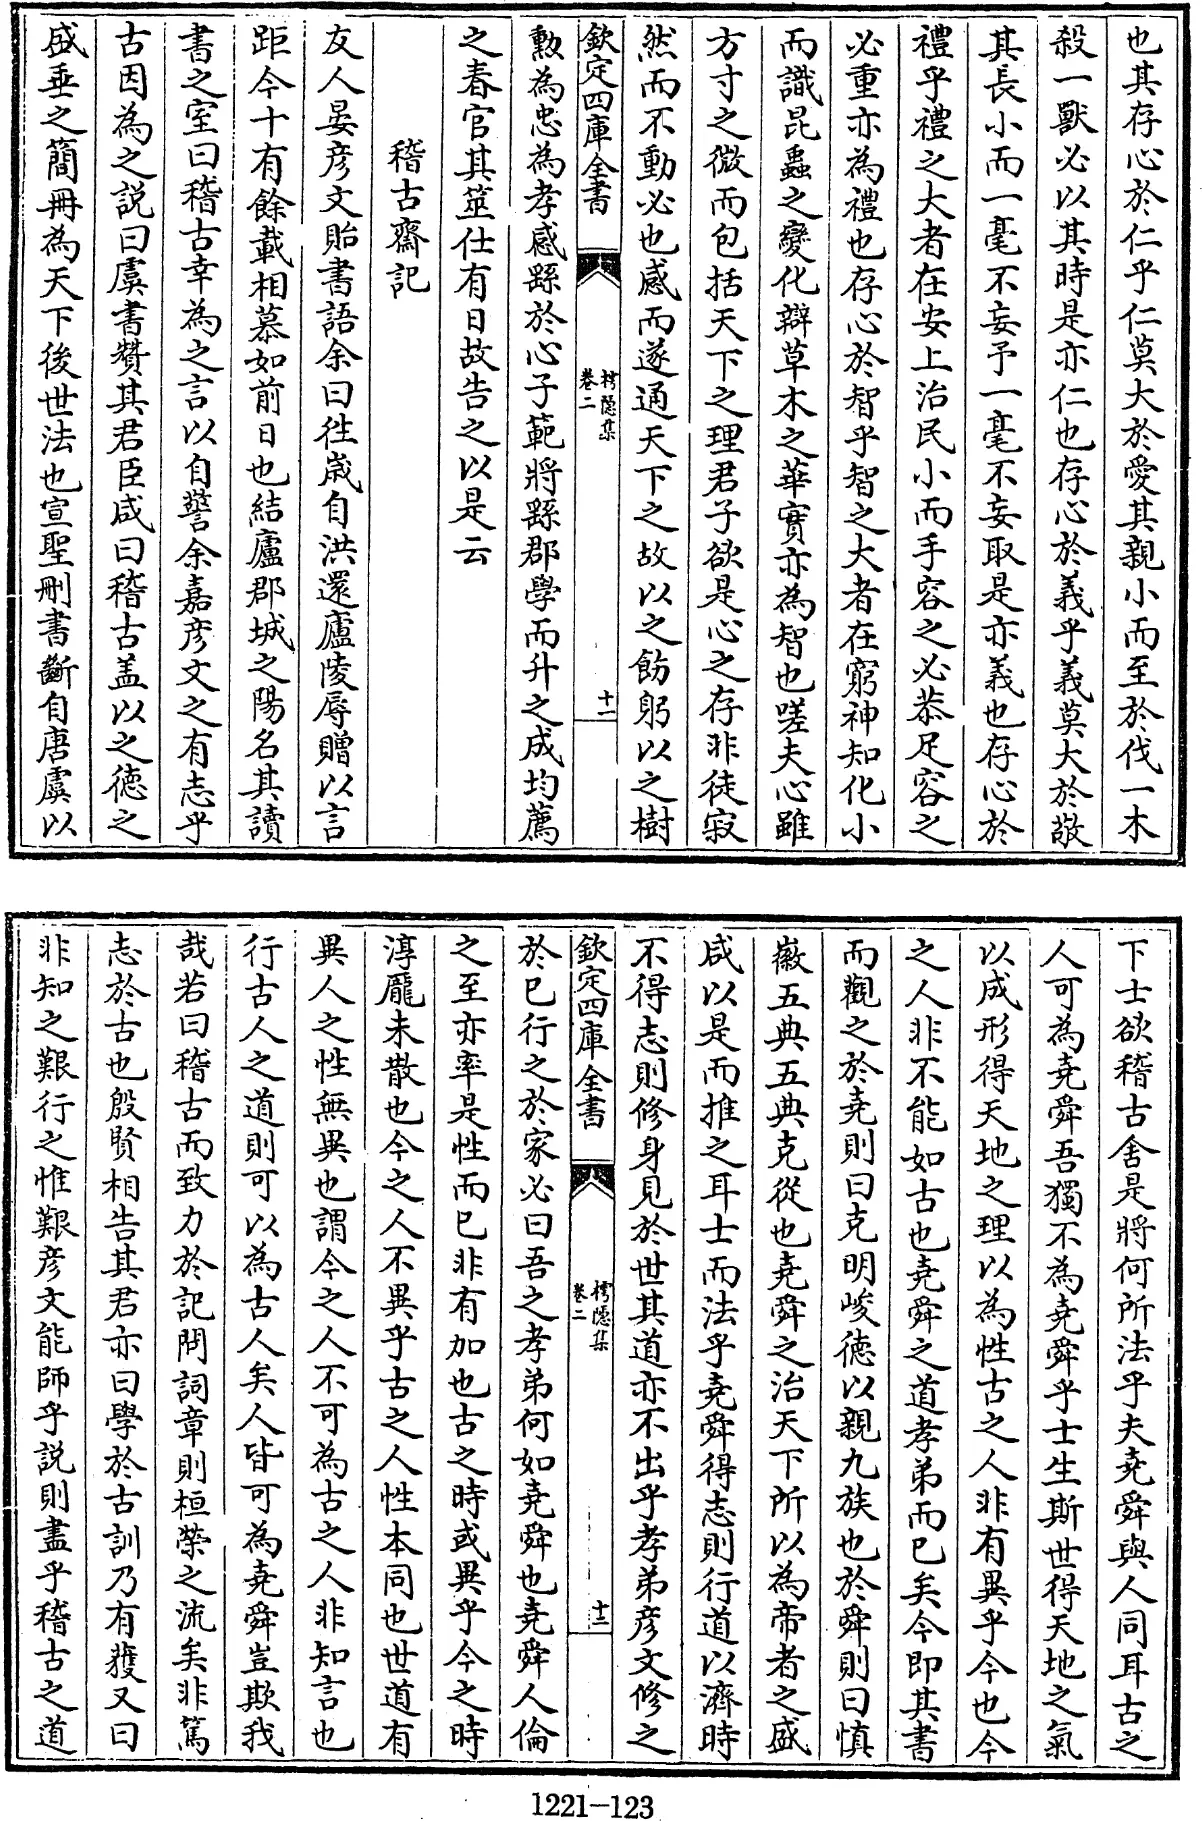 也其存心於仁乎仁莫大於愛其親小而至於伐一木
殺一獸必以其時是亦仁也存心於義乎義莫大於敬
其長小而一毫不妄予一毫不妄取是亦義也存心於
禮乎禮之大者在安上治民小而手容之必恭足容之
必重亦為禮也存心於智乎智之大者在窮神知化小
而識昆蟲之變化辯草木之華實亦為智也嗟夫心雖
方寸之微而包括天下之理君子欲是心之存非徒寂
然而不動必也感而遂通天下之故以之飭躬以之樹
欽定四庫全書
樗隱集
卷二
十一
勲為忠為孝感繇於心子範將繇郡學而升之成均薦
之春官其筮仕有日故告之以是云
稽古齋記
友人晏彦文貽書語余曰徃歳自洪還廬陵辱贈以言
距今十有餘載相慕如前日也結廬郡城之陽名其讀
書之室曰稽古幸為之言以自警余嘉彦文之有志乎
古因為之説曰虞書贊其君臣咸曰稽古盖以之德之
盛垂之簡冊為天下後世法也宣聖刪書斷自唐虞以
下士欲稽古舍是將何所法乎夫堯舜與人同耳古之
人可為堯舜吾獨不為堯舜乎士生斯世得天地之氣
以成形得天地之理以為性古之人非有異乎今也今
之人非不能如古也堯舜之道孝弟而已矣今即其書
而觀之於堯則曰克明峻德以親九族也於舜則曰慎
徽五典五典克從也堯舜之治天下所以為帝者之盛
咸以是而推之耳士而法乎堯舜得志則行道以濟時
不得志則修身見於世其道亦不出乎孝弟彦文修之
欽定四庫全書
樗隱集
卷二
十二
於已行之於家必曰吾之孝弟何如堯舜也堯舜人倫
之至亦率是性而已非有加也古之時或異乎今之時
淳龎未散也今之人不異乎古之人性本同也世道有
異人之性無異也謂今之人不可為古之人非知言也
行古人之道則可以為古人矣人皆可為堯舜豈欺我
哉若曰稽古而致力於記問詞章則桓榮之流矣非篤
志於古也殷賢相告其君亦曰學於古訓乃有獲又曰
非知之艱行之惟艱彦文能師乎説則盡乎稽古之道
1221-123